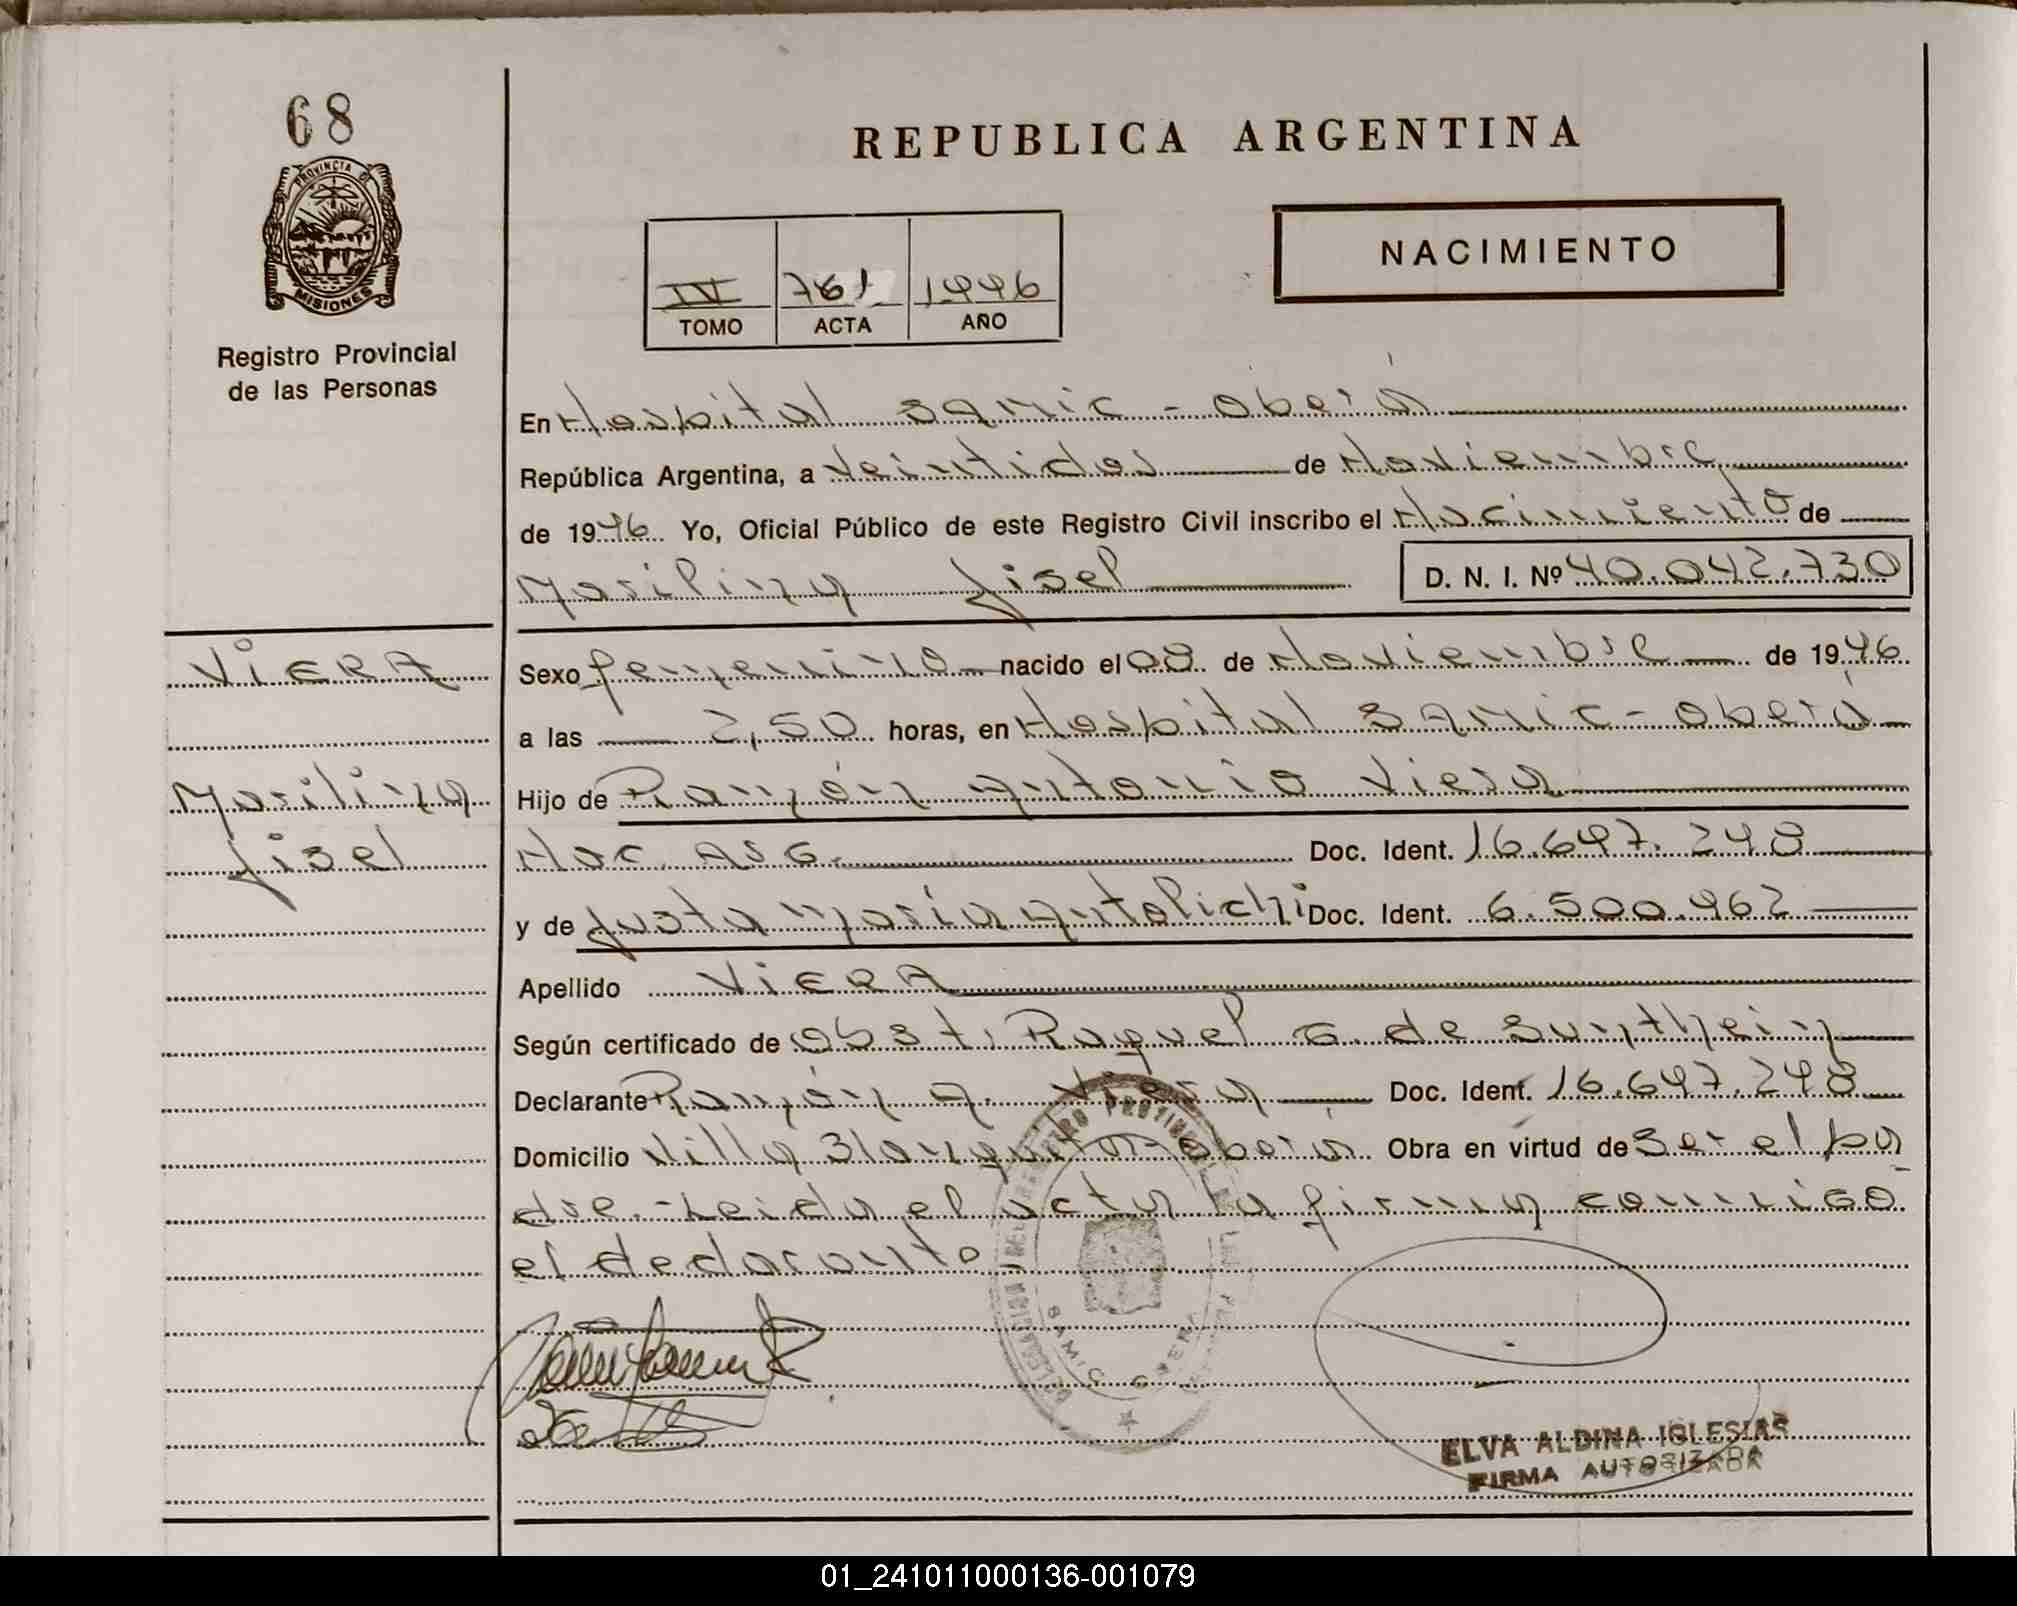 68
PROVINCIA DE
MISIONES
Registro Provincial
de las Personas
REPUBLICA ARGENTINA
NACIMIENTO
IV 761 1996
TOMO ACTA AÑO
En Hospital SAMIC - Oberá
República Argentina, a veintidos de Noviembre
de 1996 Yo, Oficial Público de este Registro Civil inscribo el Nacimiento de
Marilina Jisel D. N. I. Nº 40.042.730
VIERA
Marilina
Jisel
Sexo femenino nacido el 08 de Noviembre de 1996
a las 2,50 horas, en Hospital SAMIC - Oberá
Hijo de Ramón Antonio Viera
Nac. Arg. Doc. Ident. 16.697.298
y de Justa María Antolichi Doc. Ident. 6.500.962
Apellido VIERA
Según certificado de Obst. Raquel G. de
Declarante Ramón A. Viera Doc. Ident. 16.697.298
Domicilio Villa Blanquita - Oberá Obra en virtud de ser el pa
dre.- Leida el acta la firma conmigo
el declarante
SAMIC OBERA
ELVA ALDINA IGLESIAS
FIRMA AUTORIZADA
01_241011000136-001079